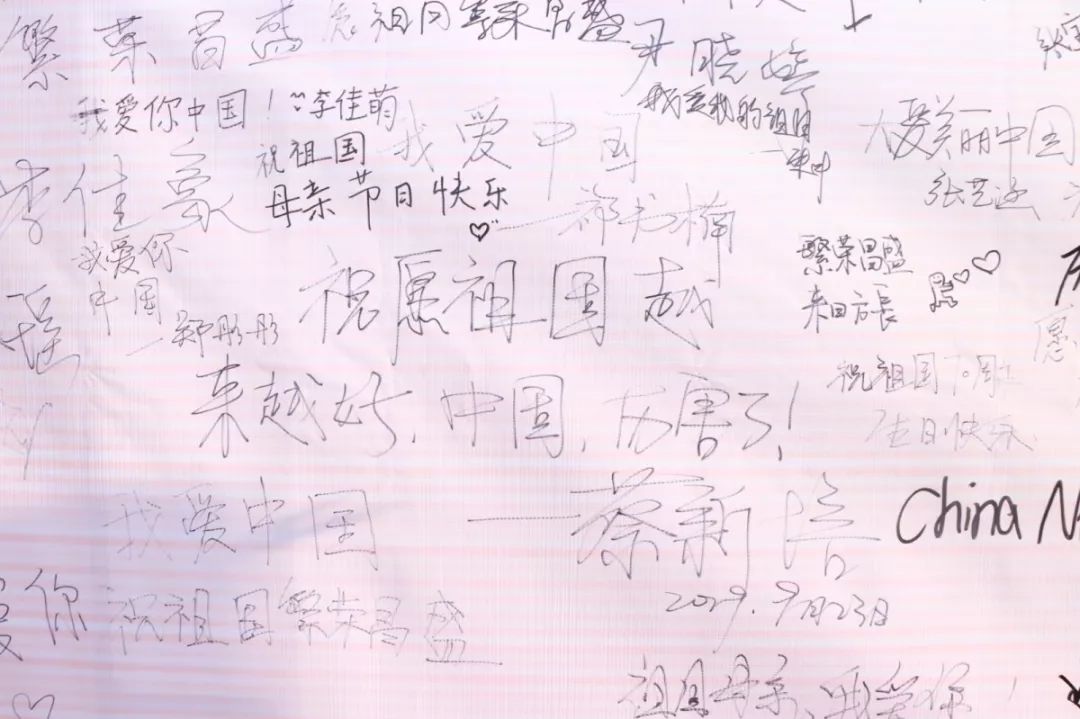 繁荣昌盛
祖国繁荣昌盛
我爱你中国！
李佳萌
尹晓婷
我爱我的祖国
祝祖国
母亲节日快乐
我爱中国
美丽中国
李佳豪
我爱你
中国
一郑彤彤
繁荣昌盛
来日方長
祝愿祖国越
来越好，中国，厉害了！
祝祖国
生日快乐
愿
我爱中国
——蔡新
China N
2019.9月23日
爱你
祝祖国繁荣昌盛
祖国母亲，我爱你！